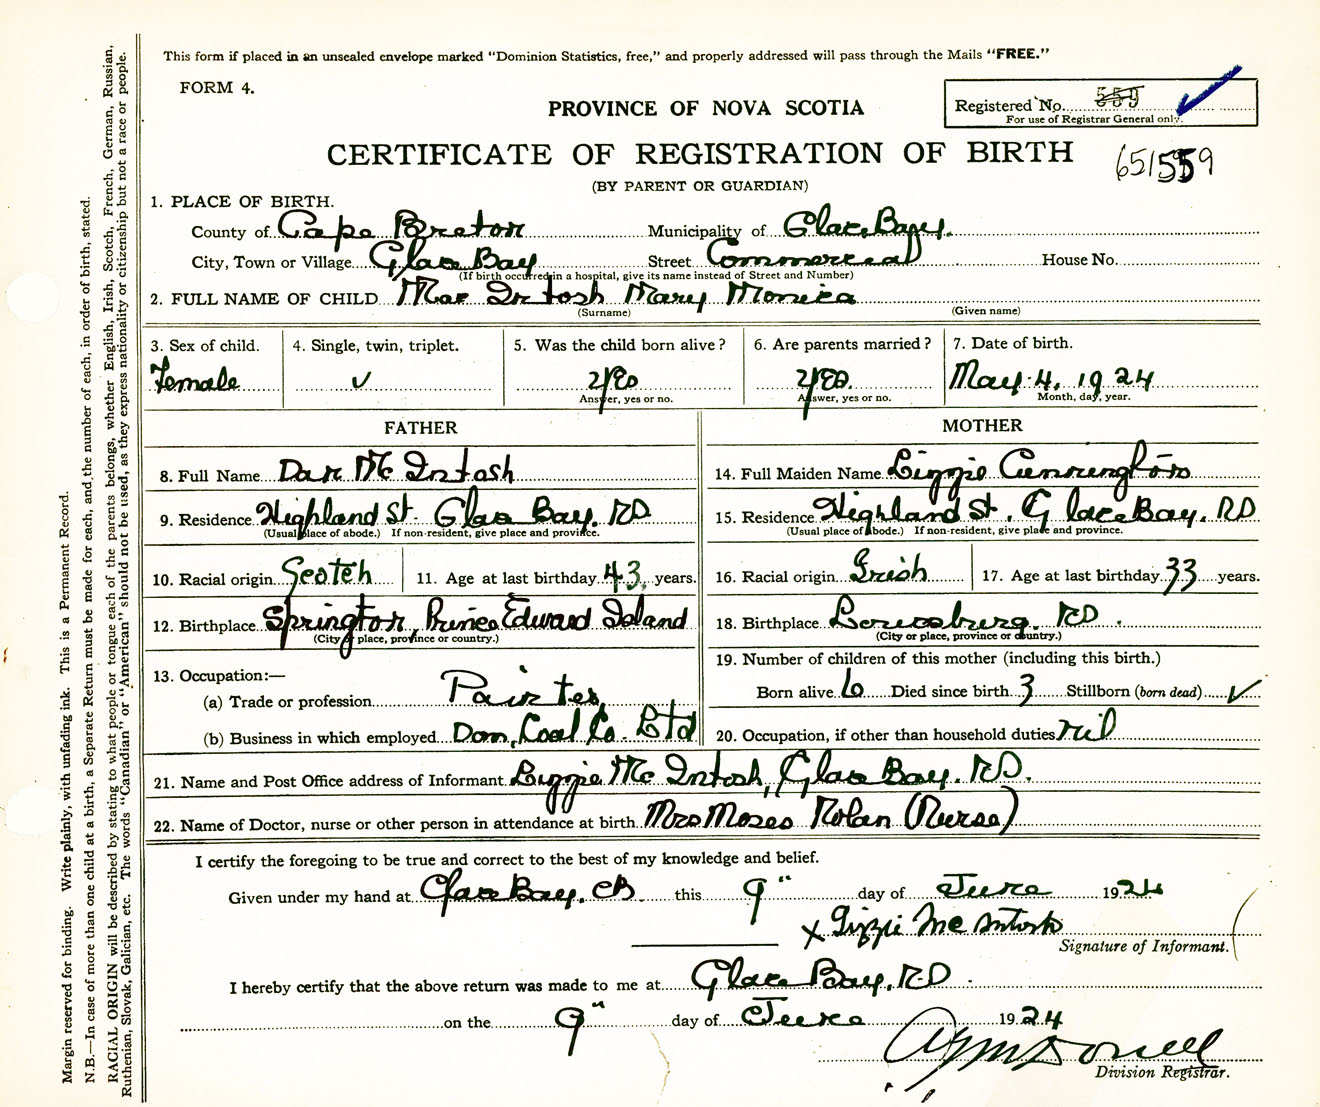 This form if placed in an unsealed envelope marked "Dominion Statistics, free," and properly addressed will pass through the Mails "FREE."
FORM 4.
PROVINCE OF NOVA SCOTIA
Registered No. 559
For use of Registrar General only.
CERTIFICATE OF REGISTRATION OF BIRTH
(BY PARENT OR GUARDIAN)
1. PLACE OF BIRTH.
County of Cape Breton Municipality of Glace Bay.
City, Town or Village Glace Bay Street Commercial House No.
(If birth occurred in a hospital, give its name instead of Street and Number)
2. FULL NAME OF CHILD Mac Intosh Mary Monica
(Surname) (Given name)
3. Sex of child. 4. Single, twin, triplet. 5. Was the child born alive? 6. Are parents married? 7. Date of birth.
Female ✓ Yes Yes. May 4, 1924
Answer, yes or no. Answer, yes or no. Month, day, year.
FATHER MOTHER
8. Full Name Dan Mc Intosh 14. Full Maiden Name Lizzie Cunnington
9. Residence Highland St. Glace Bay. RD 15. Residence Highland St. Glace Bay. RD
(Usual place of abode.) If non-resident, give place and province. (Usual place of abode.) If non-resident, give place and province.
10. Racial origin Scotch 11. Age at last birthday 43 years. 16. Racial origin Irish 17. Age at last birthday 33 years.
12. Birthplace Springton, Prince Edward Island 18. Birthplace Louisburg. RD
(City or place, province or country.) (City or place, province or country.)
13. Occupation:— 19. Number of children of this mother (including this birth.)
(a) Trade or profession Painter Born alive 6 Died since birth 3 Stillborn (born dead) ✓
(b) Business in which employed Dom. Coal Co. Ltd 20. Occupation, if other than household duties nil
21. Name and Post Office address of Informant Lizzie Mc Intosh, Glace Bay. RD.
22. Name of Doctor, nurse or other person in attendance at birth Mrs Moses Nolan (Nurse)
I certify the foregoing to be true and correct to the best of my knowledge and belief.
Given under my hand at Glace Bay. CB this 9" day of June 1924
x Lizzie Mc Intosh
Signature of Informant.
I hereby certify that the above return was made to me at Glace Bay. RD
on the 9" day of June 1924
Division Registrar.
Margin reserved for binding. Write plainly, with unfading ink. This is a Permanent Record.
N.B.—In case of more than one child at a birth, a Separate Return must be made for each, and the number of each, in order of birth, stated.
RACIAL ORIGIN will be described by stating to what people or tongue each of the parents belongs, whether English, Irish, Scotch, French, German, Russian,
Ruthenian, Slovak, Galician, etc. The words "Canadian" or "American" should not be used, as they express nationality or citizenship but not a race or people.